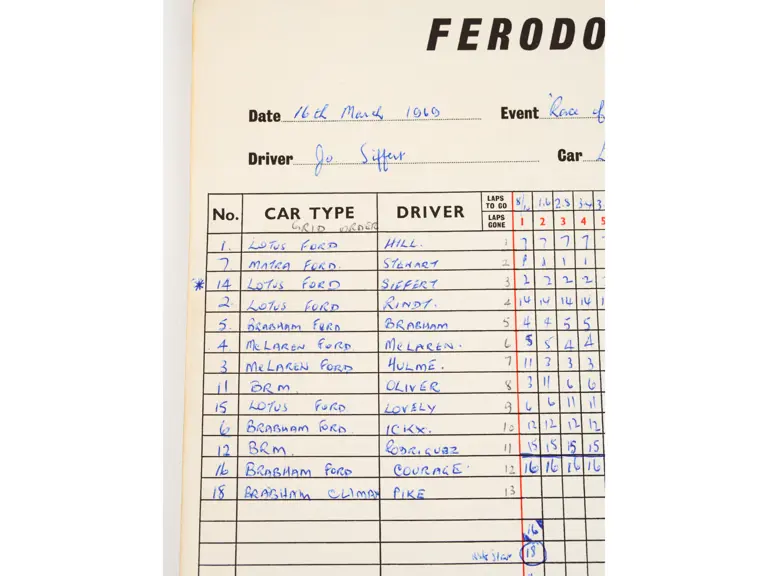 FERODO
Date 16th March 1969 Event Race of
Driver Jo Siffert Car
No. CAR TYPE DRIVER LAPS TO GO 1.6 2.8 3.4 3.
GRID ORDER LAPS GONE 1 2 3 4 5
1. LOTUS FORD HILL. 1 7 7 7 7 7
7. MATRA FORD. STEWART 2 1 1 1 1
* 14 LOTUS FORD SIFFERT 3 2 2 2 2
2. LOTUS FORD RINDT. 4 14 14 14 14
5. BRABHAM FORD BRABHAM 5 4 4 5 5
4 McLAREN FORD McLAREN. 6 5 5 4 4
3 McLAREN FORD HULME. 7 11 3 3 3
11 BRM. OLIVER 8 3 11 6 6
15 LOTUS FORD LOVELY 9 6 6 11 11
6 BRABHAM FORD. ICKX. 10 12 12 12 12
12 BRM. RODRIGUEZ 11 15 15 15 15
16 BRABHAM FORD COURAGE 12 16 16 16 16
18 BRABHAM CLIMAX PIKE 13
16
18